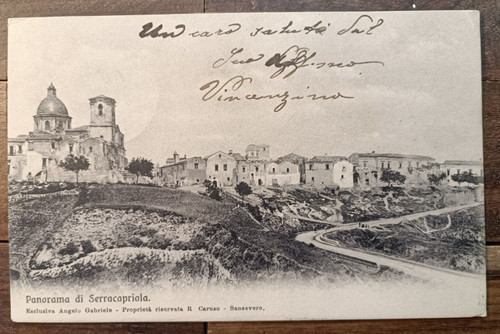 Un caro saluto dal
Suo Aff.mo
Vincenzino
Panorama di Serracapriola.
Esclusiva Angelo Gabriele - Proprietà riservata R. Caruso - Sansevero.